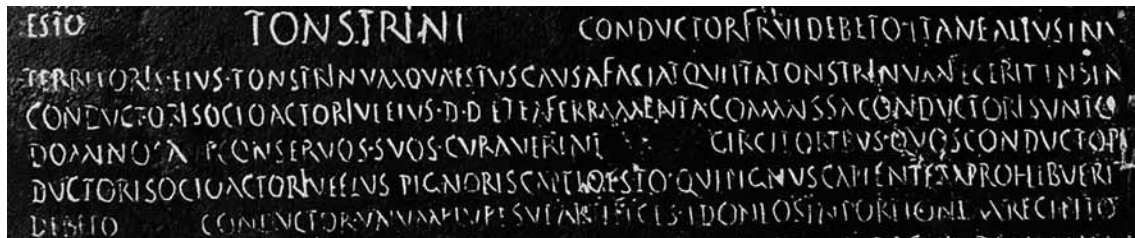 ESTO TONSTRINI CONDVCTOR FRVI DEBETO · ITA NE ALIVS IN V
TERRITORIS · EIVS · TONSTRINVM QVAESTVS CAVSA FACIAT QVI ITA TONSTRINVM FECERIT IN SIN
CONDVCTORI SOCIO ACTORIVE EIVS · D · D ET EA FERRAMENTA COMMISSA CONDVCTORI SVNTO
CONSERVOS · SVOS · CVRAVERINT CIRCITORIBVS · QVOS CONDVCTOR
DVCTORI SOCIO ACTORIVE EIVS PIGNORIS CAPTIO ESTO · QVI PIGNVS CAPIENTEM PROHIBVERIT
DEBETO CONDVCTOR VNVM PLVRESVE ARTIFICES · IDONEOS IN PORTIONEM RECIPITO